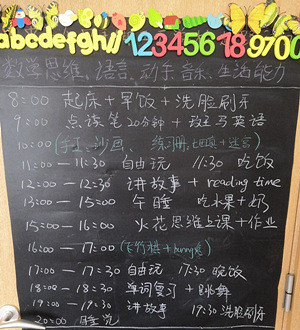 abcdefghi 123456 18 9700
数学思维、语言、动手、音乐、生活能力
8:00 起床+早饭+洗脸刷牙
9:00 点读笔20分钟+斑马英语
10:00 (手工、沙画、练习册、田字+迷宫)
11:00—11:30 自由玩 11:30 吃饭
12:00—12:30 讲故事+reading time
13:00—15:00 午睡 吃水果+奶
15:00—16:00 火花思维上课+作业
16:00—17:00 (飞行棋+
17:00—17:30 自由玩 17:30 晚饭
18:00—18:30 单词复习+跳舞
19:00—19:30 讲故事 19:30 洗脸刷牙
20:00 睡觉